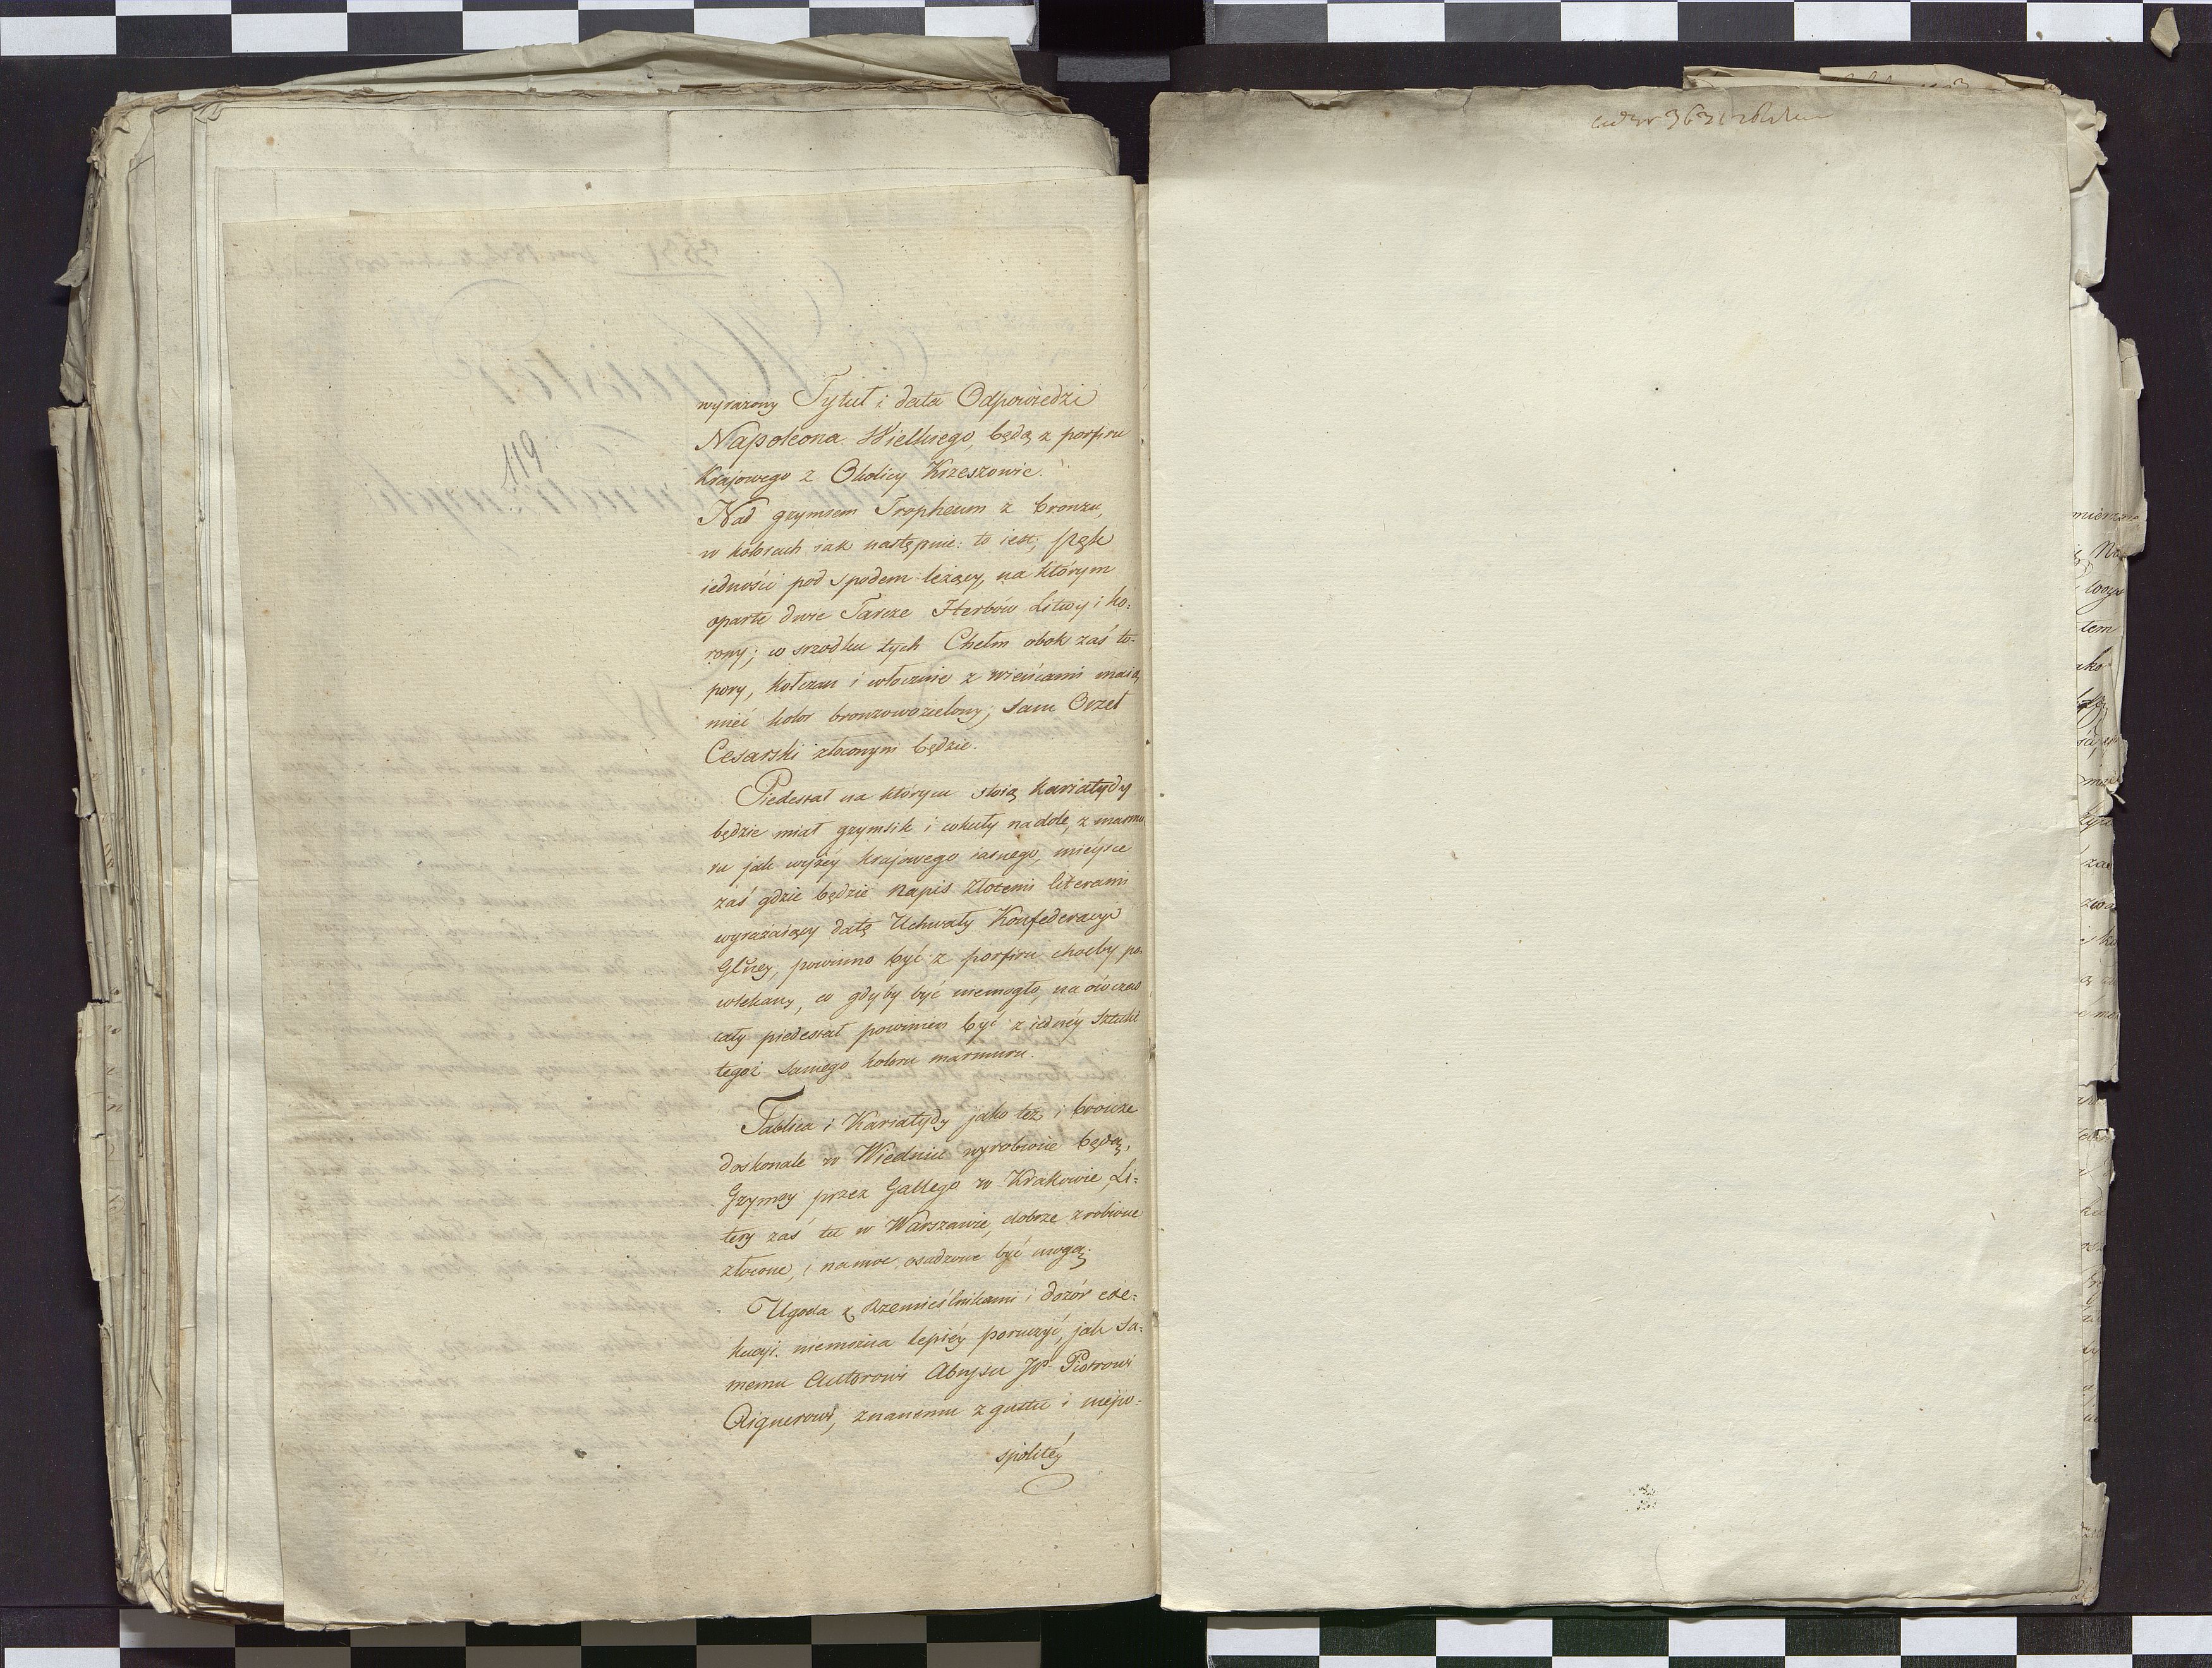 wyrazony Tytuł i data Odpowiedzi
Napoleona Wielkiego, będą z porfiru
Krajowego z Okolicy Krzeszowic.
Nad gzymsem Tropheum z bronzu,
w kolorach iak następnie: to iest; pęk
iedności pod spodem leżący, na którym
oparte dwie Tarcze Herbów Litwy i Ko:
rony; w srzodku tych Chełm obok zaś to:
pory, kołczan i włocznie z wieńcami maią
mieć kolor bronzowozielony; sam Orzeł
Cesarski złoconym będzie.
Piedestał na którym stoią Kariatydy
będzie miał gzymsik i cokuły na dole, z marmu
ru jak wyżéy krajowego iasnego, mieysce
zaś gdzie będzie napis złotemi literami
wyrażaiący datę Uchwały Konfederacyi
Glney, powinno być z porfiru choćby po:
wlekany, co gdyby być niemogło, na ów czas
cały piedestał powinien być z iednéy Sztuki
tegoż samego koloru marmuru.
Tablica i Kariatydy jako też i bronze
doskonale w Wiedniu wyrobione będą,
Gzymsy przez Gallego w Krakowie, Li:
tery zaś tu w Warszawie, dobrze zrobione
złocone, i na moc osadzone być mogą.
Ugoda z Rzemieślnikami i dozór exe:
kucyi niemożna lepiéy poruczyć, jak sa:
memu Autorowi Abrysu JP. Piotrowi
Aignerowi, znanemu z gustu i niepo:
spolitéy
119
3631